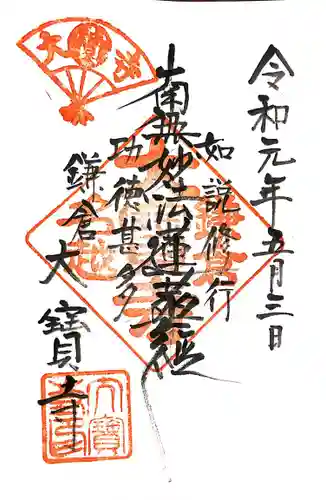 令和元年五月三日
如説修行
南無妙法蓮華経
功徳甚多
鎌倉大寶寺
大寶